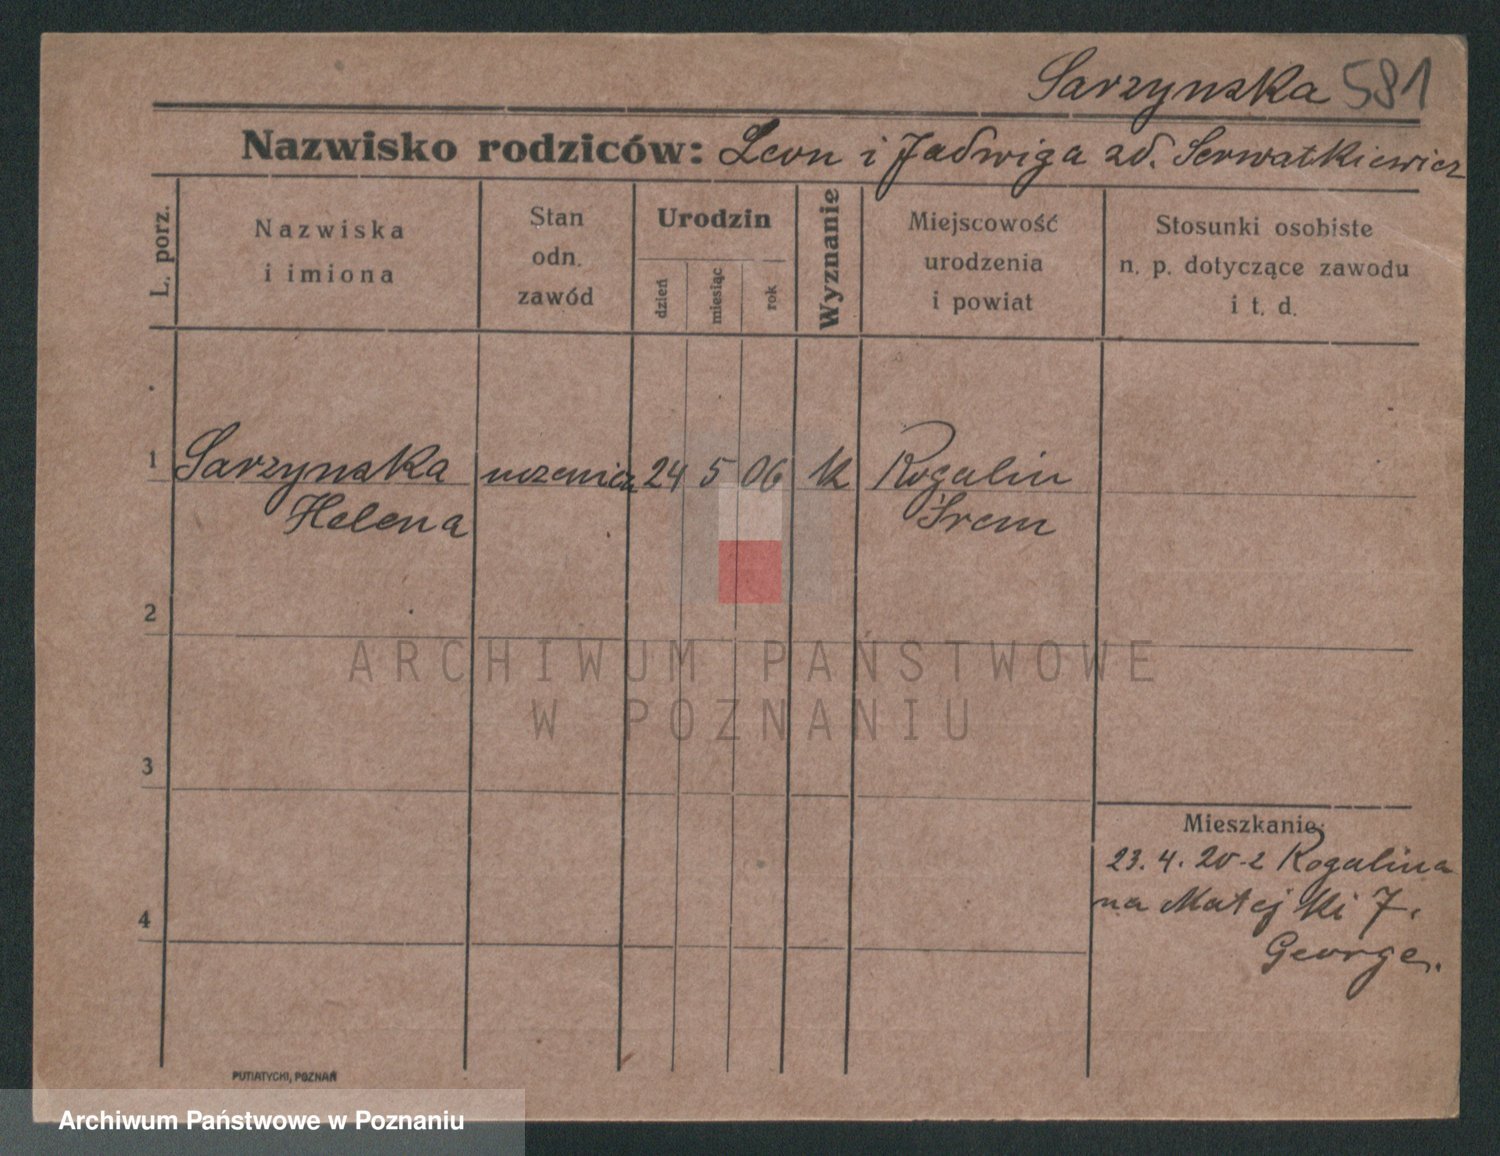 Sarzynska 581
Nazwisko rodziców: Leon i Jadwiga zd. Serwatkiewicz
L. porz.
Nazwiska
i imiona
Stan
odn.
zawód
Urodzin
dzień
miesiąc
rok
Wyznanie
Miejscowość
urodzenia
i powiat
Stosunki osobiste
n. p. dotyczące zawodu
i t. d.
1 Sarzynska uczenica 24 5 06 k Rogalin
Helena Śrem
2
ARCHIWUM PAŃSTWOWE
W POZNANIU
3
Mieszkanie:
23. 4. 20 z Rogalina
na Matejki 7.
George.
4
PUTIATYCKI, POZNAŃ
Archiwum Państwowe w Poznaniu